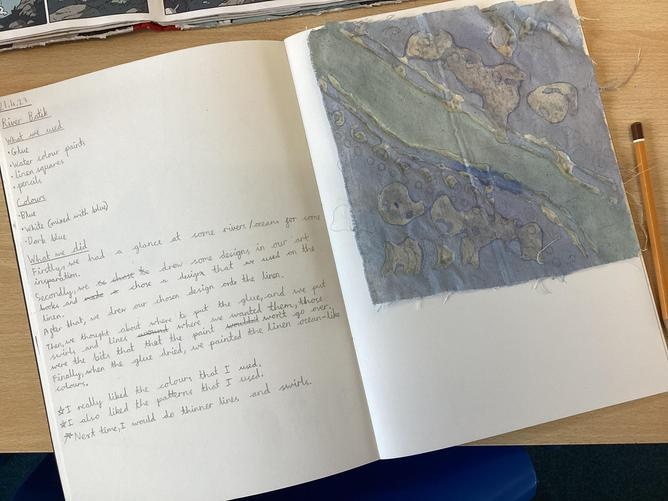 21.4.23
River Batik
What we used
•Glue
•Water colour paints
•linen squares
•pencils
Colours
•Blue
•White (mixed with blue)
•Dark blue
What we did
Firstly, we had a glance at some rivers/oceans for some
insparation.
Secondly, we drew some designs in our art
books and chose a design that we used on the
linen.
After that, we drew our chosen design onto the linen.
Then, we thought about where to put the glue, and we put
swirls and lines where we wanted them, those
were the bits that that the paint won't go over.
Finally, when the glue dried, we painted the linen ocean-like
colours.
☆I really liked the colours that I used.
☆I also liked the patterns that I used.
☆Next time, I would do thinner lines and swirls.